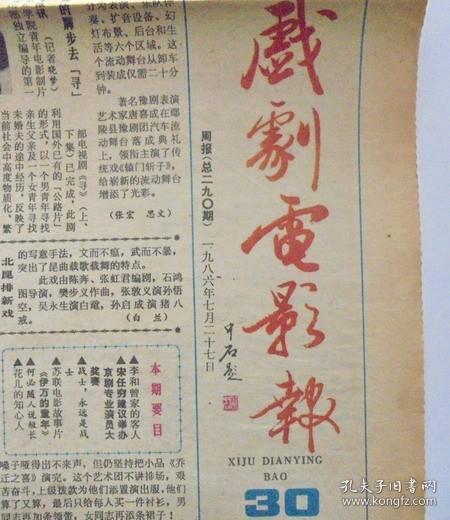 戏剧电影報
XIJU DIANYING
BAO
30
周报(总二九〇期)
一九八六年七月二十七日
中石题
奏、扩音设备、幻
灯布景、后台和生
活等六个区域。这
个流动舞台从卸车
到装成仅需二十分
钟。
著名豫剧表演
艺术家唐喜成在鄢
陵县豫剧团汽车流
动舞台落成典礼
上,领衔主演了传
统戏《辕门斩子》,
给崭新的流动舞台
增添了光彩。
(张宏 思文)
的脚步去「寻」
(记者晓梦)
学院青年电影制片
愿独立编导的第一
部电视剧《寻》(上、
下集)已完成,此剧
利用国外已有的「公路片」
的形式,以一个男青年寻找
亲生父亲及一个女青年寻找
未婚夫的途中经历,反映了
当前社会中高度物质化、繁
北昆排新戏
的写意手法,文而不瘟,武而不暴,
突出了昆曲载歌载舞的特点。
此戏由陈奔、张虹君编剧,石鸿
图导演,樊步义作曲,张敦义演孙悟
空,吴永生演白鼋,孙启成演猪八
戒。
(白兰)
本期要目
▲李和曾家的客人
▲宋任穷建议举办
京剧专业演员大
奖赛
▲战士,永远是战
士
▲苏联电影故事片
《伊万的童年》
▲何必随人说短长
▲花儿的知心人
嗓子哑得出不来声,但仍坚持把小品《乔
迁之喜》演完。这个艺术团不讲排场,艰
苦奋斗,上级拨款为他们添置演出服,他们
算了又算,最后只给每人买一件衬衫,男
同志再加条领带,女同志再添条裙子!
孔夫子旧书网